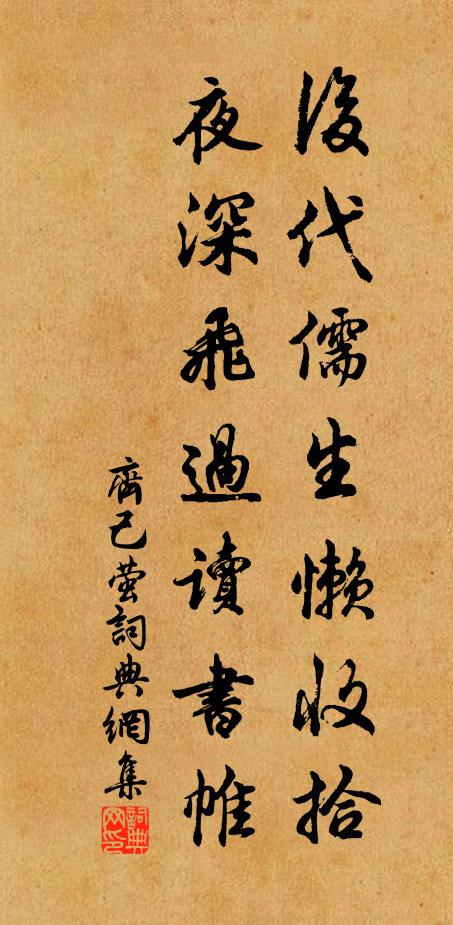 後代儒生懶收拾
夜深飛過讀書帷
齊己螢詞典網集
詞典網印